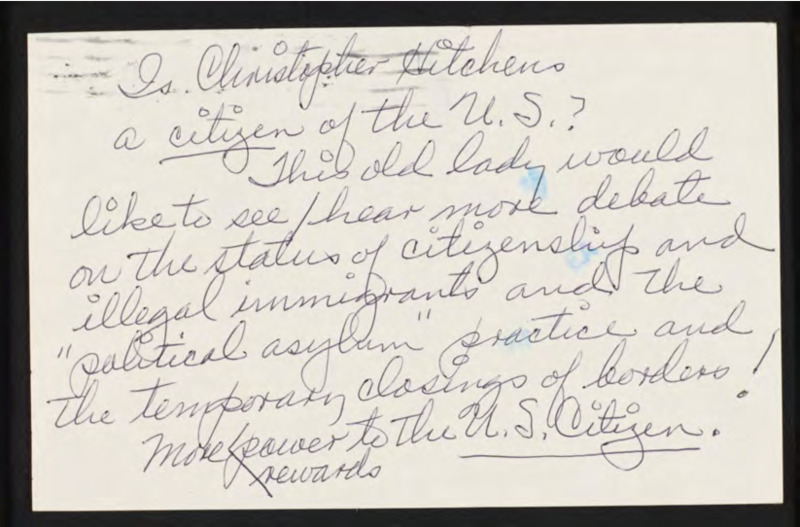 Is Christopher Hitchens
a citizen of the U.S.?
This old lady would
like to see/hear more debate
on the status of citizenship and
illegal immigrants and the
"political asylum" practice and
the temporary closings of borders!
More power to the U.S. Citizen.
rewards